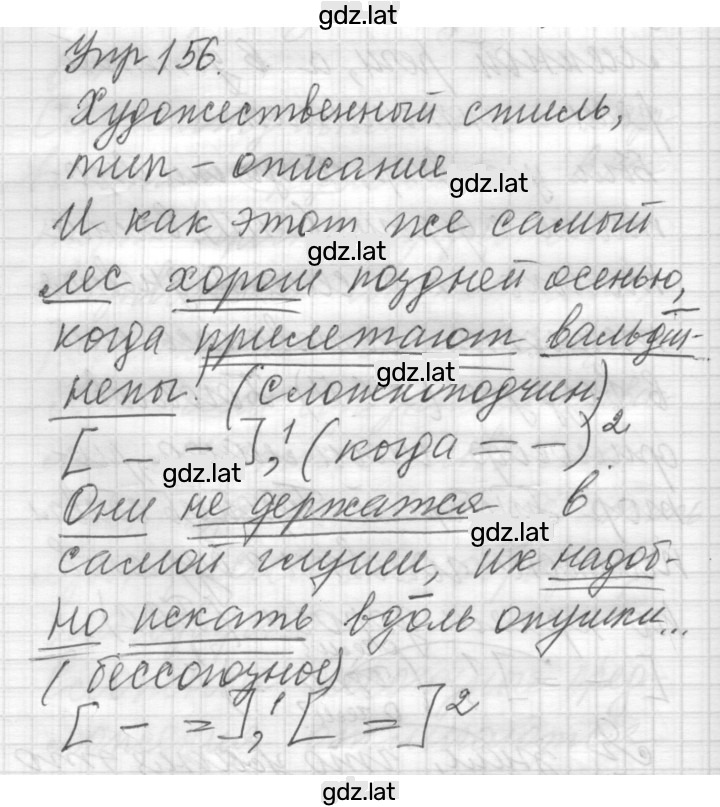 gdz.lat
Упр 156.
Художественный стиль,
тип – описание
gdz.lat
И как этот же самый
gdz.lat
лес хорош поздней осенью,
когда прилетают вальдш-
gdz.lat
непы! (сложноподчин)
[ – – ],¹ (когда = –)²
gdz.lat
Они не держатся в
gdz.lat
самой глуши, их надоб-
но искать вдоль опушки...
(бессоюзное)
[ – = ],¹ [ = ]²
gdz.lat